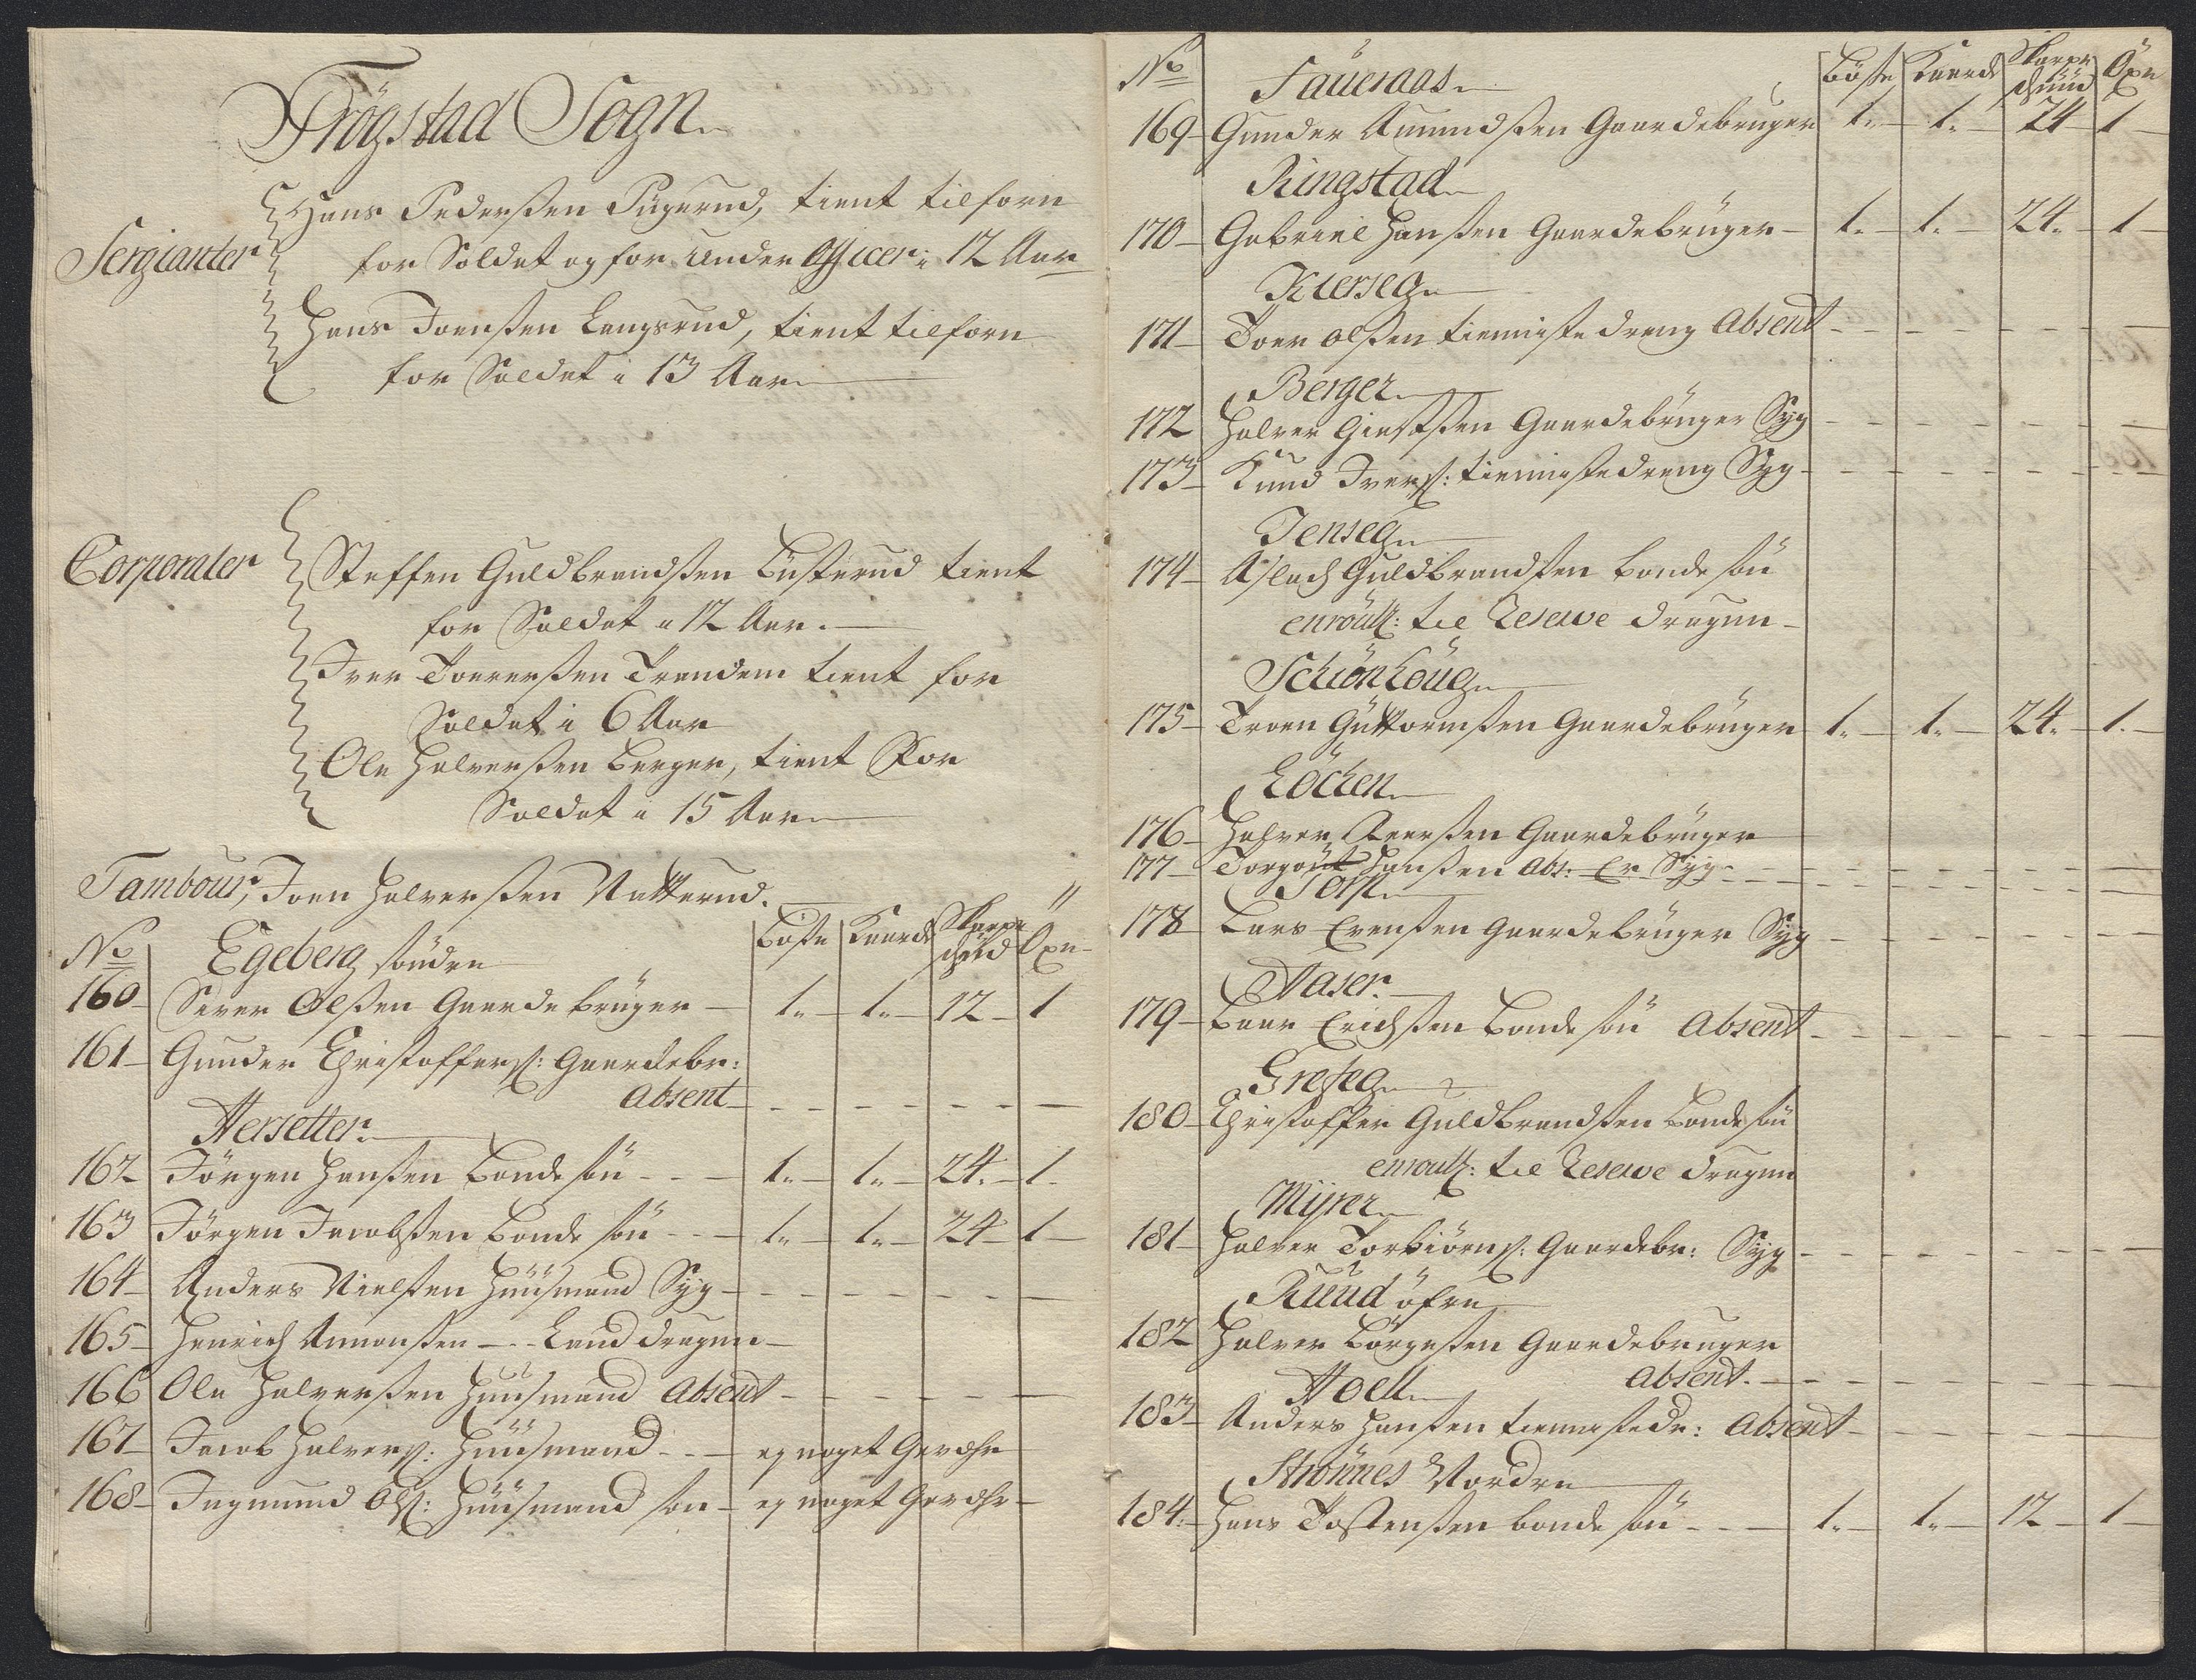 Frögstad Sogn
Hans Pedersen Pügerud, tient tilforn
Sergianter for Soldat og for under Officer i 12 Aar
Hans Joensen Langsrud, tient tilforn
for Soldat i 13 Aar
Corporaler Steffen Guldbrandsen Büsterud tient
for Soldat i 12 Aar.
Iver Toeresen Trandem tient for
Soldat i 6 Aar
Ole Halversen Berger, tient for
Soldat i 15 Aar
Tambour, Joen Halversen Natterud.
No Egeberg söndre Bösse Kaarde Skarpe skud Öxe
160 Siver Olsen Gaardebrüger 1 1 12 1
161 Gunder Christoffers: Gaardebr:
Absent
Hersetter
162 Jörgen Hansen Bonde sön 1 1 24 1
163 Jörgen Jacobsen Bonde sön 1 1 24 1
164 Anders Nielsen Huusmand Syg
165 Henrich Amonsen Land dragun
166 Ole Halversen Huusmand Absent
167 Jacob Halvers: Huusmand ey noget Gevæhr
168 Ingmund Ols: Huusmand sön ey noget Gevæhr
No Faueraas Bösse Kaarde Skarpe skud Öxe
169 Gunder Amundsen Gaardebruger 1 1 24 1
Ringstad
170 Gabriel Hansen Gaardebrüger 1 1 24 1
Kierseg
171 Toer Olsen tienniste dreng Absent
Berger
172 Halver Giestsen Gaardebrüger Syg
173 Knud Ivers: tienniste dreng Syg
Jenseg
174 Aslach Guldbrandsen bonde sön
enroull: til Reserve dragun
Schiönhoug
175 Troen Guttormsen Gaardebrüger 1 1 24 1
Löcken
176 Halver Aversen Gaardebrüger
177 Torgou Hansen Abs: Er Syg
Torp
178 Lars Evensen Gaardebrüger Syg
Haser
179 Baar Erichsen Bonde sön Absent
Greseg
180 Christoffer Guldbrandsen Bonde sön
enroull: til Reserve dragun
Myrer
181 Halver Torbiörns: Gaardebr: Syg
Ruud öfre
182 Halver Börgesen Gaardebruger
Absent
Hoell
183 Anders Hansen tienniste dr: Absent
Strönnes Nordre
184 Hans Tostensen bonde sön 1 1 12 1